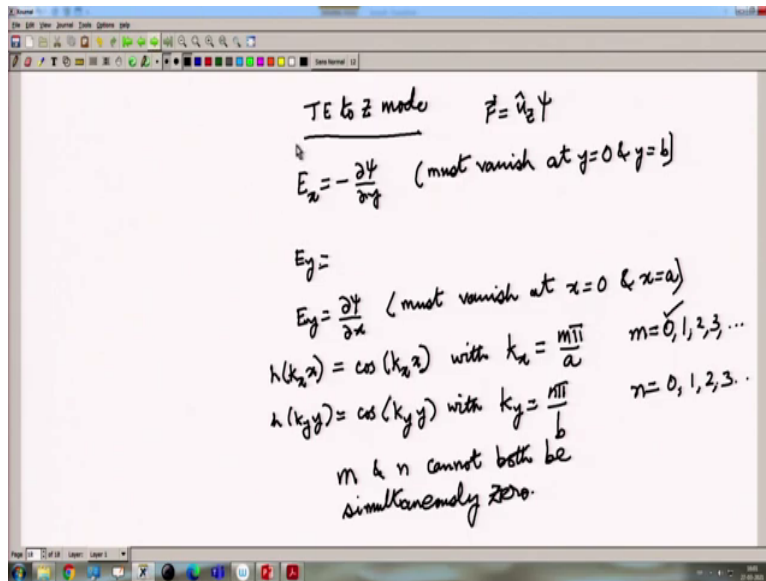 Xournal
File Edit View Journal Tools Options Help
Sans Normal 12
TE to Z mode F⃗ = û_z ψ
E_x = -∂ψ/∂y (must vanish at y=0 & y=b)
E_y =
E_y = ∂ψ/∂x (must vanish at x=0 & x=a)
h(k_x x) = cos(k_x x) with k_x = mπ/a m=0,1,2,3,...
h(k_y y) = cos(k_y y) with k_y = nπ/b n=0,1,2,3..
m & n cannot both be
simultaneously zero.
Page 18 of 18 Layer: Layer 1